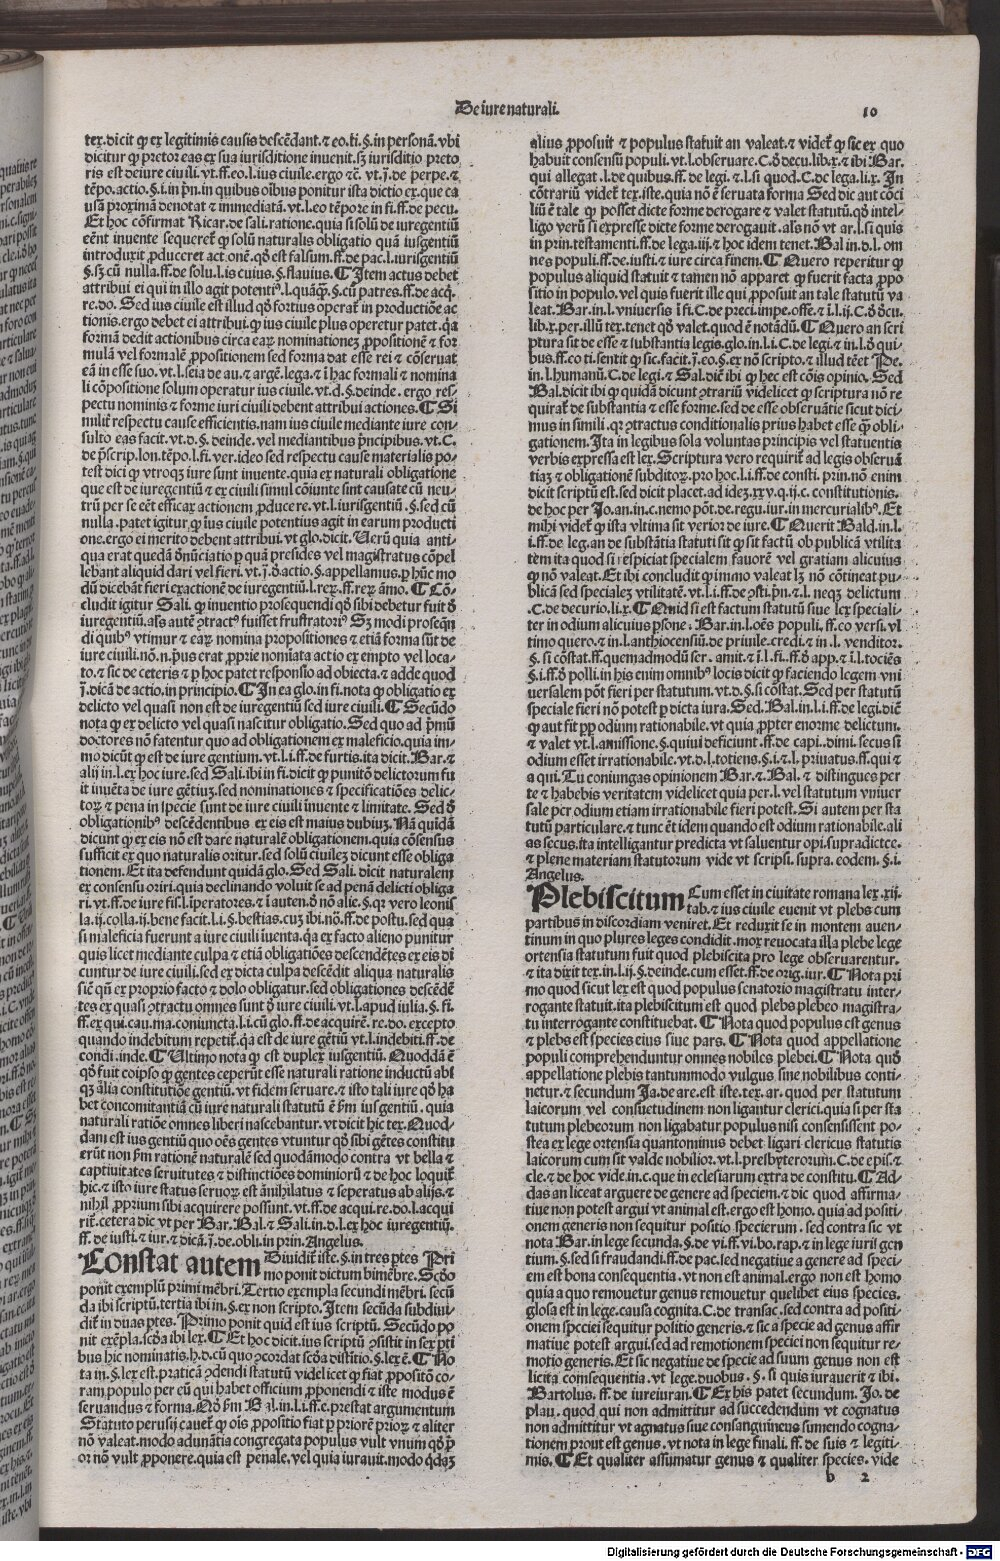 De iure naturali.
10
tex. dicit ꝙ ex legitimis causis descēdant. ⁊ eo. ti. §. in personā. vbi
dicitur ꝙ pretor eas ex sua iurisditione inuenit. sꝫ iurisditio preto
ris est de iure ciuili. vt. ff. eo. l. ius ciuile. ergo ⁊c̄. vt. j̄. de perpe. ⁊
tēpo. actio. §. i. in pn̄. in quibus oībus ponitur ista dictio ex. que ca
usā proximā denotat ⁊ immediatā. vt. l. eo tēpore in fi. ff. de pecu.
Et hoc cōfirmat Ricar. de sali. ratione. quia si solū de iuregentiū
eēnt inuente sequeret̄ ꝙ solū naturalis obligatio quā iusgentiū
introduxit ꝓduceret act. onē. qđ est falsum. ff. de pac. l. iurisgentiū
§. sꝫ cū nulla. ff. de solu. l. is cuius. §. flauius. ¶ Item actus debet
attribui ei qui in illo agit potentiꝰ. l. quāꝙ̄. §. cū patres. ff. de acq̄.
re. do. Sed ius ciuile est illud qđ fortius operat̄ in productiōe ac
tionis. ergo debet ei attribui. ꝙ ius ciuile plus operetur patet. q̄a
formā dedit actionibus circa earꝝ nominationeꝫ ꝓpositionē ⁊ for
mulā vel formalē ꝓpositionem sed forma dat esse rei ⁊ cōseruat
eā in esse suo. vt. l. seia de au. ⁊ argē. lega. ⁊ ī hac formali ⁊ nomina
li cōpositione solum operatur ius ciuile. vt. d. §. deinde. ergo res-
pectu nominis ⁊ forme iuri ciuili debent attribui actiones. ¶ Si
milit̄ respectu cause efficientis. nam ius ciuile mediante iure con-
sulto eas facit. vt. d. §. deinde. vel mediantibus p̄ncipibus. vt. C.
de p̄scrip. lon. tēpo. l. fi. ver. ideo sed respectu cause materialis po-
test dici ꝙ vtroqꝫ iure sunt inuente. quia ex naturali obligatione
que est de iuregentiū ⁊ ex ciuili simul cōiunte sint causate cū neu-
trū per se eēt efficax actionem ꝓducere. vt. l. iurisgentiū. §. sed cū
nulla. patet igitur ꝙ ius ciuile potentius agit in earum producti
one. ergo ei merito debent attribui. vt glo. dicit. Uerū quia anti-
qua erat quedā đnūciatio ꝑ quā presides vel magistratus cōpel
lebant aliquid dari vel fieri. vt. j̄. đ actio. §. appellamus. ꝑ hūc mo
dū dicebāt fieri exactionē de iuregentiū. l. reꝝ. ff. reꝝ āmo. ¶ Cō-
cludit igitur Sali. ꝙ inuentio prosequendi qđ sibi debetur fuit đ
iuregentiū. als autē ↄ̄tractꝰ fuisset frustratoriꝰ Sꝫ modi proseq̄n
di quibꝰ vtimur ⁊ earꝝ nomina propositiones ⁊ etiā forma sūt de
iure ciuili. nō. n. pꝰus erat ꝓprie nomīata actio ex empto vel loca-
to. ⁊ sic de ceteris ⁊ ꝑ hoc patet responsio ad obiecta. ⁊ adde quod
j̄. dicā de actio. in principio. ¶ In ea glo. in fi. nota ꝙ obligatio ex
delicto vel quasi non est de iuregentiū sed iure ciuili. ¶ Secūdo
nota ꝙ ex delicto vel quasi nascitur obligatio. Sed quo ad p̄mū
doctores nō fatentur quo ad obligationem ex maleficio. quia im-
mo dicūt ꝙ est de iure gentium. vt. l. i. ff. de furtis. ita dicit. Bar. ⁊
alij in. l. ex hoc iure. sed Sali. ibi in fi. dicit ꝙ punitō delictorum fu
it inuēta de iure gētiuꝫ. sed nominationes ⁊ specificatiōes delic-
torꝝ ⁊ pena in specie sunt de iure ciuili inuente ⁊ limitate. Sed đ
obligationibꝰ descēdentibus ex eis est maius dubiuꝫ. Nā quidā
dicunt ꝙ ex eis nō est dare naturalē obligationem. quia cōsensus
sufficit ex quo naturalis oritur. sed solū ciuileꝫ dicunt esse obliga
tionem. Et ita defendunt quidā glo. Sed Sali. dicit naturalem
ex consensu oriri. quia declinando voluit se ad penā delicti obliga
ri. vt. ff. de iure fis. l. iperatores. ⁊ ī auten. đ nō alie. §. qr vero leonis
la. ij. colla. ij. bene facit. l. i. §. bestias. cuꝫ ibi. nō. ff. de postu. sed qua
si maleficia fuerunt a iure ciuili īuenta. q̄a ex facto alieno punitur
quis licet mediante culpa ⁊ etiā obligatiōes descendētes ex eis di
cuntur de iure ciuili. sed ex dicta culpa descēdit aliqua naturalis
sicē qn̄ ex proprio facto ⁊ dolo obligatur. sed obligationes descēdē
tes ex quasi ↄ̄tractu omnes sunt đ iure ciuili. vt. l. apud iulia. §. fi.
ff. ex qui. cau. ma. coniuncta. l. i. cū glo. ff. de acquirē. re. do. excepto
quando indebitum repetit̄. q̄a est de iure gētiū vt. l. indebiti. ff. de
condi. inde. ¶ Ultimo nota ꝙ est duplex iusgentiū. Quoddā ē
qđ fuit coipso ꝙ gentes ceperūt esse naturali ratione inductū abs
qꝫ ālia constitutiōe gentiū. vt fidem seruare. ⁊ isto tali iure qđ ha
bet concomitantiā cū iure naturali statutū ē ẜm ius gentiū. quia
naturali ratiōe omnes liberi nascebantur. vt dicit hic tex. Quod-
dam est ius gentiū quo oēs gentes vtuntur qđ sibi gētes constitu
erūt non ẜm rationē naturalē sed quodāmodo contra vt bella ⁊
captiuitates seruitutes ⁊ distinctiōes dominiorū ⁊ de hoc loquit̄
hic. ⁊ isto iure status seruoꝝ est ānihilatus ⁊ seperatus ab alijs. ⁊
nihil ꝓprium sibi acquirere possunt. vt. ff. de acqui. re. do. l. acqui
rit̄. cetera dic vt per Bar. Bal. ⁊ Sali. in. d. l. ex hoc iuregentiū.
ff. de iusti. ⁊ iur. ⁊ dicā. j̄. de. obli. in prin. Angelus.
Constat autem Diuidit̄ iste. §. in tres ꝑtes Pri
mo ponit dictum bimēbre. Scđo
ponit exemplū primi mēbri. Tertio exempla secundi mēbri. secū
da ibi scriptū. tertia ibi in. §. ex non scripto. Item secūda subdiui-
dit̄ in duas ꝑtes. Primo ponit quid est ius scriptū. Secūdo po
nit exēpla. scđa ibi lex. ¶ Et hoc dicit. ius scriptū ↄ̄sistit in sex ꝑti
bus hic nominatis. h. d. cū quo ↄ̄cordat scđa distitio. §. lex ē. ¶ No
ta in. §. lex est. praticā ↄ̄dendi statutū videlicet ꝙ fiat ꝓpositō co-
ram populo per eū qui habet officium ꝓponendi ⁊ iste modus ē
seruandus ⁊ forma. Nđ ẜm Bal. in. l. i. ff. c̄. prestat argumentum
Statuto perusij cauet̄ ꝙ oīs ꝓpositio fiat ꝑ priorē priorꝝ ⁊ aliter
nō valeat. modo adunātia congregata populus vult vnum qđ p̄
or nō vult ꝓponere. quia est penale. vel quia iurauit. modo qđaꝫ
alius ꝓposuit ⁊ populus statuit an valeat. ⁊ videt̄ ꝙ sic ex quo
habuit consensū populi. vt. l. obseruare. C. đ decu. lib. x. ⁊ ibi Bar.
qui allegat. l. de quibus. ff. de legi. ⁊. l. si quod. C. de lega. li. x. In
cōtrariū videt̄ tex. iste. quia nō ē seruata forma Sed dic aut cōci
liū ē tale ꝙ posset dicte forme derogare ⁊ valet statutū. qđ intel-
ligo verū si expresse dicte forme derogauit. als nō vt ar. l. si quis
in prin. testamenti. ff. de lega. iij. ⁊ hoc idem tenet. Bal in. d. l. om
nes populi. ff. de. iusti. ⁊ iure circa finem. ¶ Quero reperitur ꝙ
populus aliquid statuit ⁊ tamen nō apparet ꝙ fuerit facta ꝓpo
sitio in populo. vel quis fuerit ille qui ꝓposuit an tale statutū va
leat. Bar. in. l. vniuersis ī fi. C. de preci. impe. offe. ⁊ ī. l. ij. C. đ đcu.
lib. x. per. illū tex. tenet qđ valet. quod ē notādū. ¶ Quero an scri
ptura sit de esse ⁊ substantia legis. glo. in. l. i. C. de legi. ⁊ in. l. đ qui-
bus. ff. eo ti. sentit ꝙ sic. facit. j̄. eo. §. ex nō scripto. ⁊ illud tēet Pe.
in. l. humanū. C. de legi. ⁊ Sal. dic̄t ibi ꝙ hec est cōis opinio. Sed
Bal. dicit ibi ꝙ quidā dicunt ↄ̄trariū videlicet ꝙ scriptura nō re
quirat̄ de substantia ⁊ esse forme. sed de esse obseruātie sicut dici-
mus in simili. qr ↄ̄tractus conditionalis prius habet esse ꝙ̄ obli-
gationem. Ita in legibus sola voluntas principis vel statuentis
verbis expressa est lex. Scriptura vero requirit̄ ad legis obseruā
tiaꝫ ⁊ obligatione subditorꝝ. pro hoc. l. i. ff. de consti. prin. nō enim
dicit scriptū est. sed dicit placet. ad ideꝫ. xxv. q. ij. c. constitutionis.
de hoc per Jo. an. in. c. nemo pōt. de. regu. iur. in mercurialibꝰ. Et
mihi videt̄ ꝙ ista vltima sit verior de iure. ¶ Querit Bald. in. l.
i. ff. de leg. an de substātia statuti sit ꝙ sit factū ob publicā vtilita
tem ita quod si respiciat specialem fauorē vel gratiam alicuius
ꝙ nō valeat. Et ibi concludit ꝙ immo valeat lꝫ nō cōtineat pu-
blicā sed specialeꝫ vtilitatē. vt. l. i. ff. de ↄ̄sti. pn̄. ⁊. l. neqꝫ delictum
. C. de decurio. li. x. ¶ Quid si est factum statutū siue lex speciali-
ter in odium alicuius ꝑsone. Bar. in. l. oēs populi. ff. eo versi. vl
timo quero. ⁊ in. l. anthiocensiū. de priuile. credi. ⁊ in. l. venditor.
§. si cōstat. ff. quemadmodū ser. amit. ⁊ ī. l. fi. ff. đ app. ⁊ ī. l. tociēs
§. i. ff. đ polli. in his enim omnibꝰ locis dicit ꝙ faciendo legem vni
uersalem pōt fieri per statutum. vt. d. §. si cōstat. Sed per statutū
speciale fieri nō potest ꝑ dicta iura. Sed. Bal. in. l. i. ff. de legi. dic̄t
ꝙ aut fit ꝓp odium rationabile. vt quia ꝓpter enorme delictum.
⁊ valet vt. l. amissione. §. quiui deficiunt. ff. de capi. dimi. secus si
odium esset irrationabile. vt. d. l. totiens. §. i. ⁊. l. priuatus. ff. qui ⁊
a qui. Tu coniungas opinionem Bar. ⁊. Bal. ⁊ distingues per
te ⁊ habebis veritatem videlicet quia per. l. vel statutum vniuer
sale per odium etiam irrationabile fieri potest. Si autem per sta
tutū particulare. ⁊ tunc ēt idem quando est odium rationabile. ali
as secus. ita intelligantur predicta vt saluentur opi. supradictee.
⁊ plene materiam statutorum vide vt scripsi. supra. eodem. §. i.
Angelus.
Plebiscitum Cum esset in ciuitate romana lex. xij.
tab. ⁊ ius ciuile euenit vt plebs cum
partibus in discordiam veniret. Et reduxit se in montem auen-
tinum in quo plures leges condidit. mox reuocata illa plebe lege
ortensia statutum fuit quod plebiscita pro lege obseruarentur.
⁊ ita dixit tex. in. l. ij. §. deinde. cum esset. ff. de orig. iur. ¶ Nota pri
mo quod sicut lex est quod populus senatorio magistratu inter-
rogante statuit. ita plebiscitum est quod plebs plebeo magistra-
tu interrogante constituebat. ¶ Nota quod populus est genus
⁊ plebs est species eius siue pars. ¶ Nota quod appellatione
populi comprehenduntur omnes nobiles plebei. ¶ Nota quđ
appellatione plebis tantummodo vulgus sine nobilibus conti-
netur. ⁊ secundum Ja. de are. est. iste. tex. ar. quod per statutum
laicorum vel consuetudinem non ligantur clerici. quia si per sta
tutum plebeorum non ligabatur populus nisi consensissent po-
stea ex lege ortensia quantominus debet ligari clericus statutis
laicorum cum sit valde nobilior. vt. l. presbyterorum. C. de epis. ⁊
cle. ⁊ de hoc vide. in. c. que in eclesiarum extra de constitu. ¶ Ad-
das an liceat arguere de genere ad speciem. ⁊ dic quod affirma-
tiue non potest argui vt animal est. ergo est homo. quia ad positi-
onem generis non sequitur positio specierum. sed contra sic vt
nota Bar. in lege secunda. §. de vi. ff. vi. bo. rap. ⁊ in lege iuris gen
tium. §. sed si fraudandi. ff. de pac. sed negatiue a genere ad speci-
em est bona consequentia. vt non est animal. ergo non est homo
quia a quo remouetur genus remouetur quelibet eius species.
glosa est in lege. causa cognita. C. de transac. sed contra ad positi-
onem speciei sequitur positio generis. ⁊ sic a specie ad genus affir
matiue potest argui. sed ad remotionem speciei non sequitur re-
motio generis. Et sic negatiue de specie ad suum genus non est
licita comsequentia. vt lege. duobus. §. si quis iurauerit ⁊ ibi.
Bartolus. ff. de iureiuran. ¶ Ex his patet secundum. Jo. de
plau. quod qui non admittitur ad succedendum vt cognatus
non admittitur vt agnatus siue consanguineus sumendo cogna-
tionem prout est genus. vt nota in lege finali. ff. de suis ⁊ legiti-
mis. ¶ Et qualiter assumatur genus ⁊ qualiter species. vide
b 2
Digitalisierung gefördert durch die Deutsche Forschungsgemeinschaft - DFG